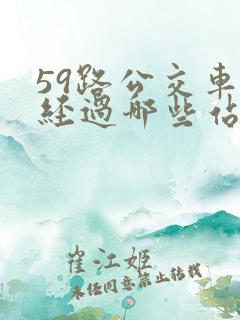 59路公交車
經過哪些佔
崔江姬
未经同意禁止转载